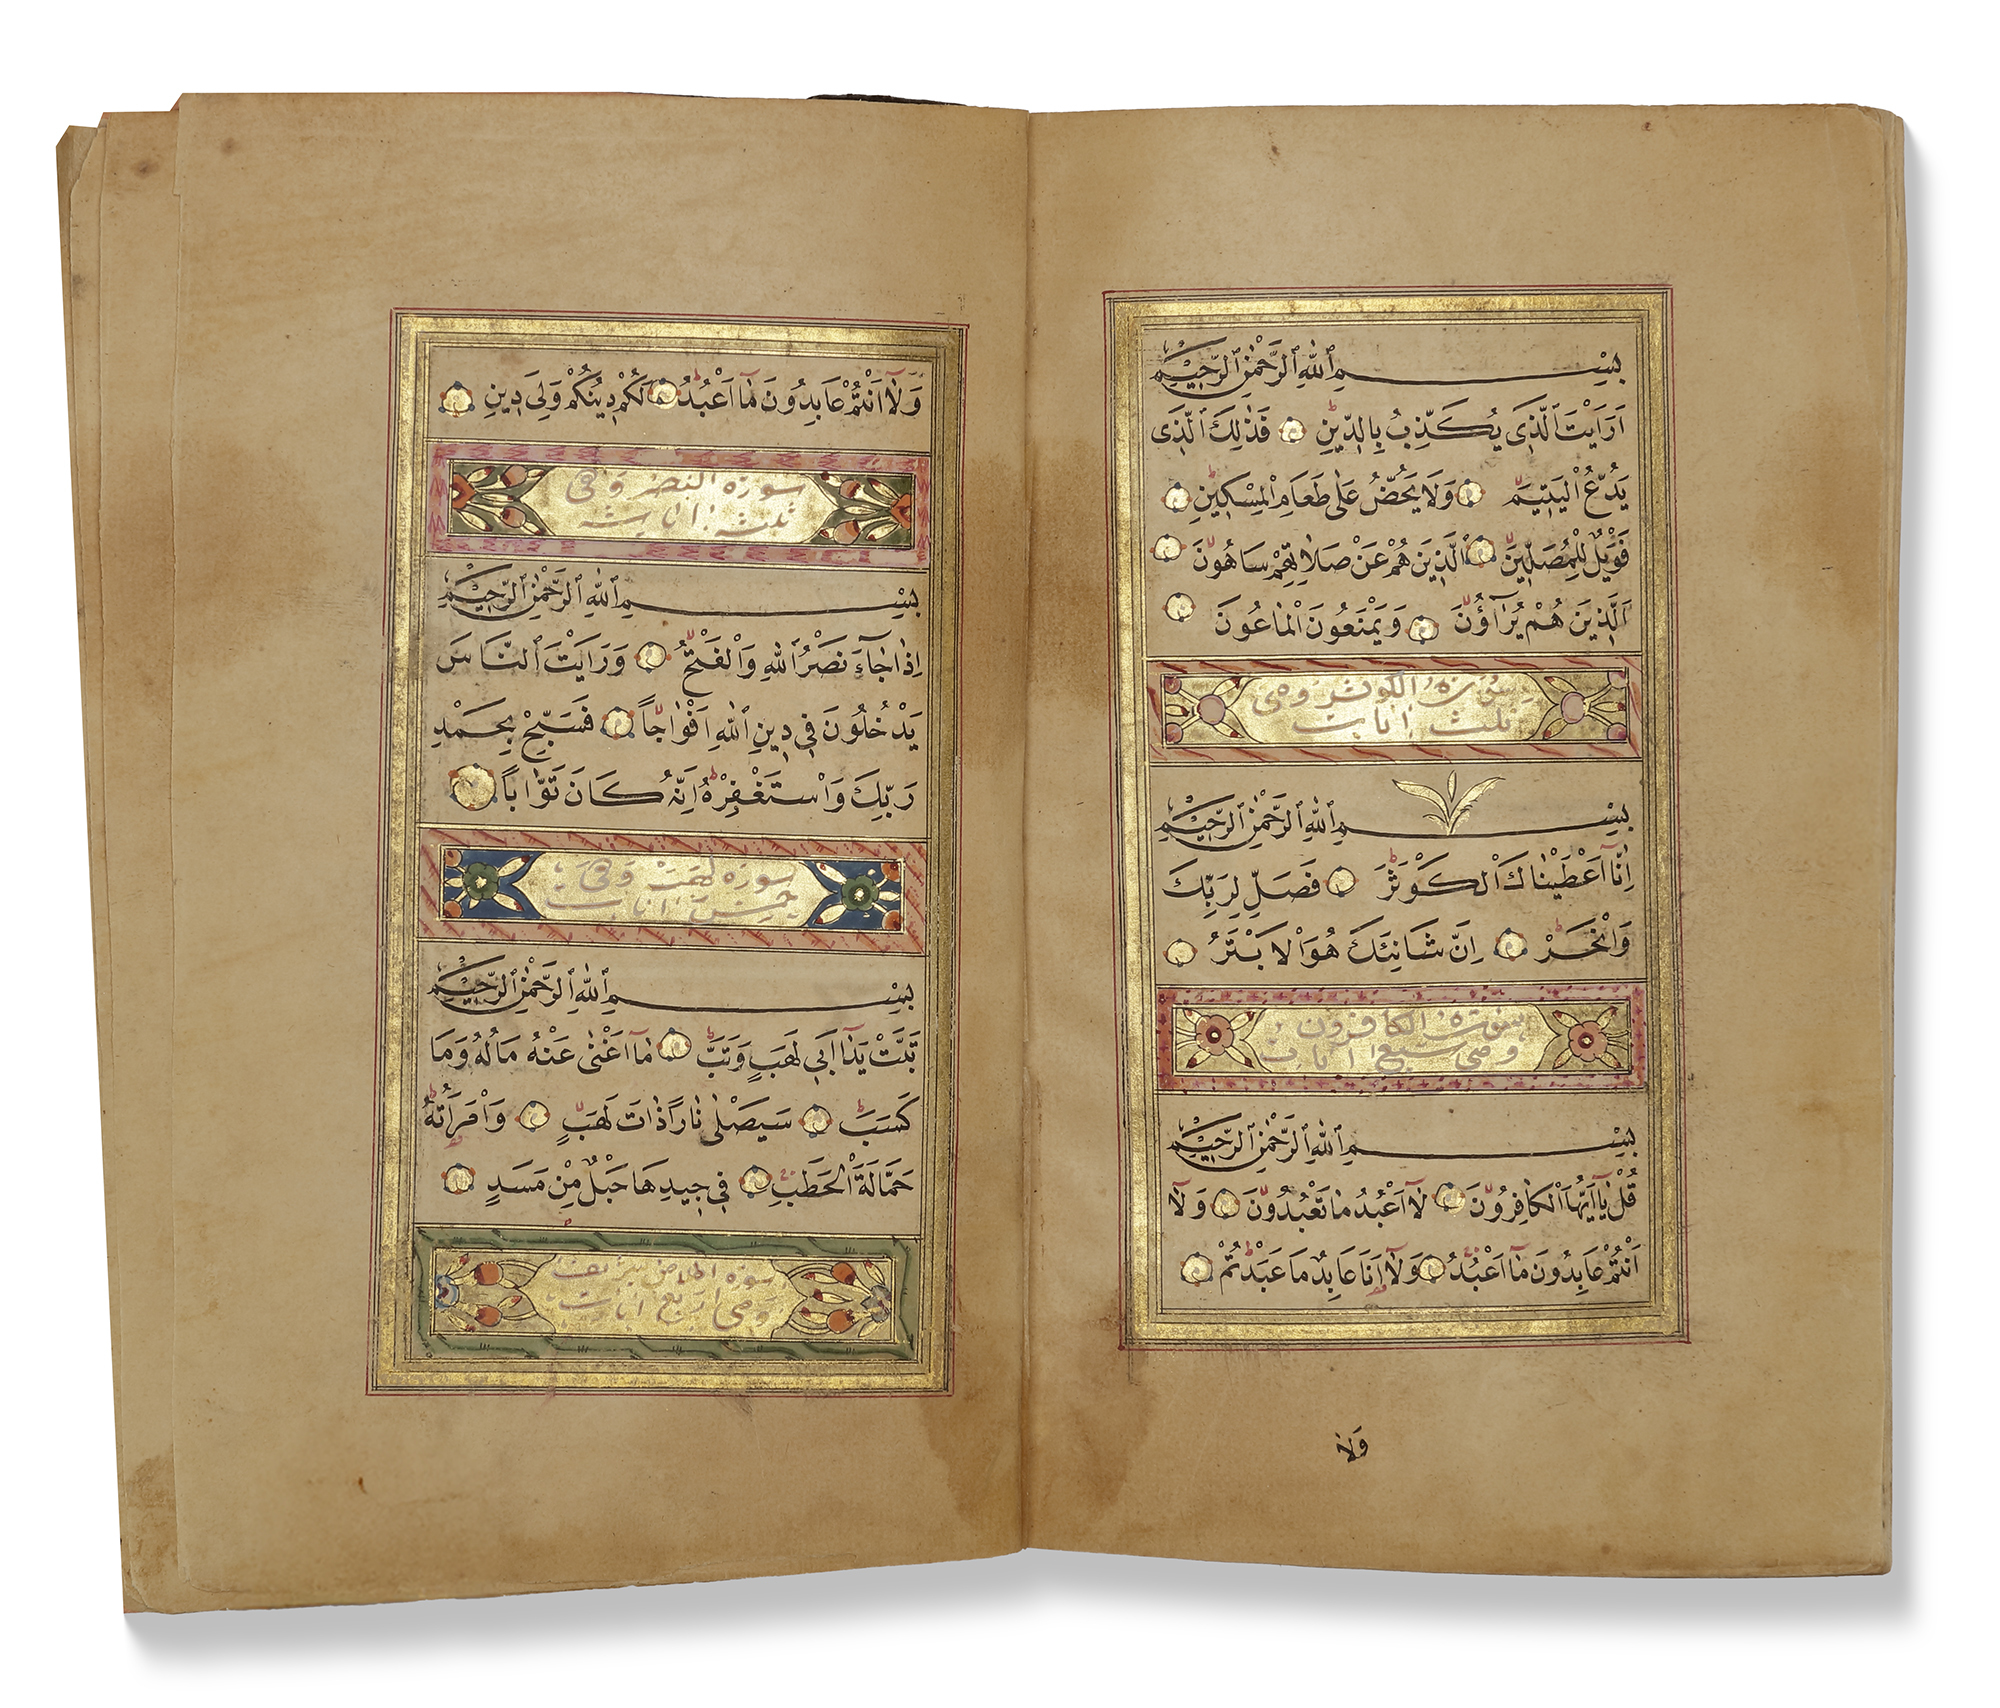 بِسْمِ ٱللّٰهِ ٱلرَّحْمٰنِ ٱلرَّحِيْمِ
اَرَاَيْتَ ٱلَّذٖى يُكَذِّبُ بِالدّٖينِ فَذٰلِكَ ٱلَّذٖى
يَدُعُّ الْيَتٖيمَ وَلَا يَحُضُّ عَلٰى طَعَامِ الْمِسْكٖينِ
فَوَيْلٌ لِلْمُصَلّٖينَ اَلَّذٖينَ هُمْ عَنْ صَلَاتِهِمْ سَاهُونَ
اَلَّذٖينَ هُمْ يُرَآؤُنَ وَيَمْنَعُونَ الْمَاعُونَ
سورة الكوثر وهى
ثلث ايات
بِسْمِ ٱللّٰهِ ٱلرَّحْمٰنِ ٱلرَّحِيْمِ
اِنَّٓا اَعْطَيْنَاكَ الْكَوْثَرَ فَصَلِّ لِرَبِّكَ
وَانْحَرْ اِنَّ شَانِئَكَ هُوَ الْاَبْتَرُ
سورة الكافرون
وهى سبع ايات
بِسْمِ ٱللّٰهِ ٱلرَّحْمٰنِ ٱلرَّحِيْمِ
قُلْ يَٓا اَيُّهَا الْكَافِرُونَ لَٓا اَعْبُدُ مَا تَعْبُدُونَ وَلَٓا
اَنْتُمْ عَابِدُونَ مَٓا اَعْبُدُ وَلَٓا اَنَا عَابِدٌ مَا عَبَدْتُمْ
وَلَا
وَلَٓا اَنْتُمْ عَابِدُونَ مَٓا اَعْبُدُ لَكُمْ دٖينُكُمْ وَلِىَ دٖينِ
سورة النصر وهى
ثلث ايات
بِسْمِ ٱللّٰهِ ٱلرَّحْمٰنِ ٱلرَّحِيْمِ
اِذَا جَٓاءَ نَصْرُ ٱللّٰهِ وَالْفَتْحُ وَرَاَيْتَ ٱلنَّاسَ
يَدْخُلُونَ فٖى دٖينِ ٱللّٰهِ اَفْوَاجًا فَسَبِّحْ بِحَمْدِ
رَبِّكَ وَاسْتَغْفِرْهُ اِنَّهُ كَانَ تَوَّابًا
سورة لهب وهى
خمس ايات
بِسْمِ ٱللّٰهِ ٱلرَّحْمٰنِ ٱلرَّحِيْمِ
تَبَّتْ يَدَٓا اَبٖى لَهَبٍ وَتَبَّ مَٓا اَغْنٰى عَنْهُ مَالُهُ وَمَا
كَسَبَ سَيَصْلٰى نَارًا ذَاتَ لَهَبٍ وَامْرَاَتُهُ
حَمَّالَةَ الْحَطَبِ فٖى جٖيدِهَا حَبْلٌ مِنْ مَسَدٍ
سورة اخلاص شريف
وهى اربع ايات